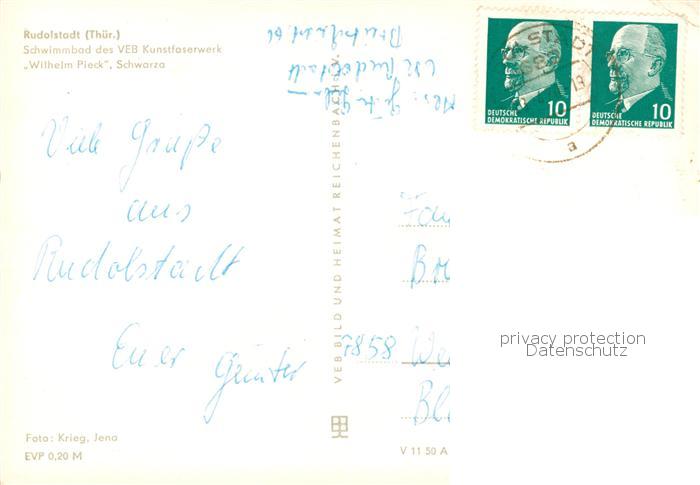 Rudolstadt (Thür.)
Schwimmbad des VEB Kunstfaserwerk
„Wilhelm Pieck", Schwarza
Viele Grüße
aus
Rudolstadt
Euer Günter
Foto: Krieg, Jena
EVP 0,20 M
VEB BILD UND HEIMAT REICHENBACH
Rudolstadt
10
DEUTSCHE
DEMOKRATISCHE REPUBLIK
10
DEUTSCHE
DEMOKRATISCHE REPUBLIK
a
Fam
Br
We
Bl
V 11 50 A
privacy protection
Datenschutz